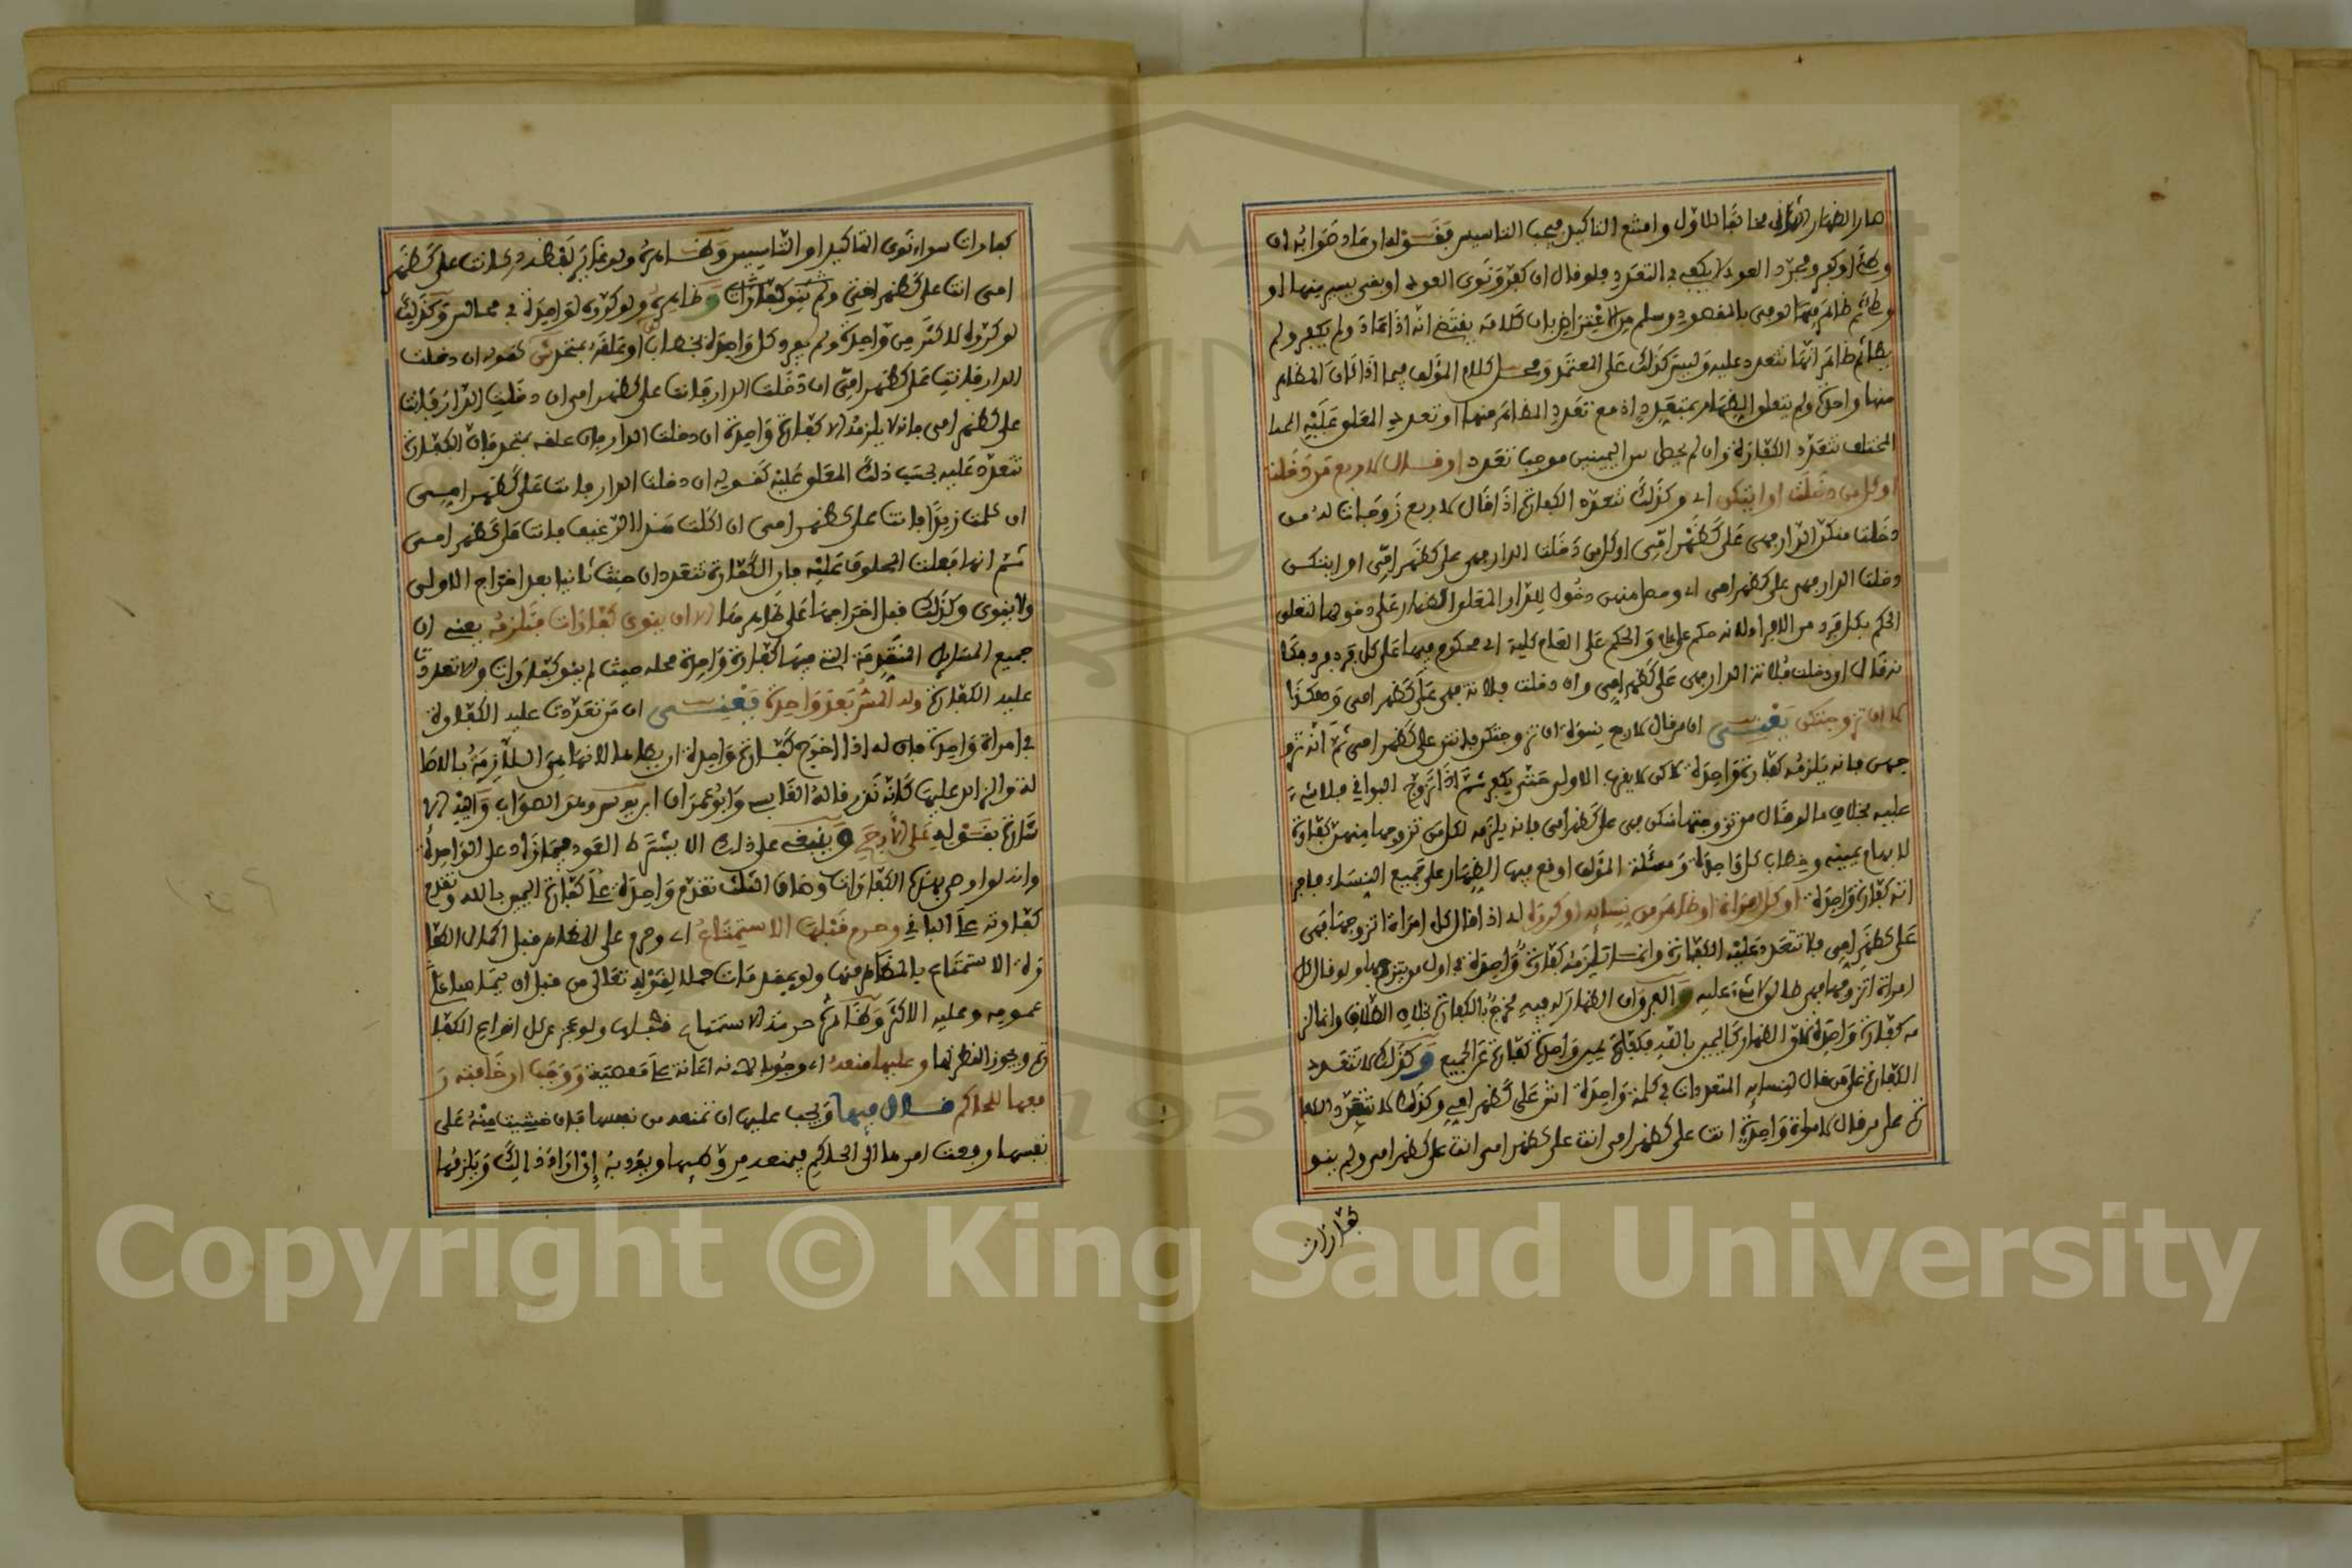 صار الظهار الثاني مخالفا للاول وامتنع التاكيد فيجب التاسيس فقوله او عاد صوابه او
وطئ او كفر ومجرد العود لا يكفي في التعدد فلو قال ان كفر ونوى العود او بقي يسير منها او
وطئ ثم ظاهر فيهما لوفى بالمقصود وسلم من الاعتراض بان كلامه يقتضي انه اذا عاد ولم يكفر ولم
يطا ثم ظاهر انها تتعدد عليه وليس كذلك على المعتمد ومحل كلام المؤلف فيما اذا كان المظاهر
منها واحدة ولم يتعلق الظهار بمتعدد اذ مع تعدد المظاهر منها او تعدد المعلق عليه
المختلف تتعدد الكفارة وان لم يحصل بين اليمينين موجب تعدد او قال لاربع من دخلت
او كل من دخلت او ايتكن اي وكذلك تتعدد الكفارة اذا قال لاربع زوجات له من
دخلت منكن الدار فهي علي كظهر امي او كل من دخلت الدار فهي علي كظهر امي او ايتكن
دخلت الدار فهي علي كظهر امي اي وحصل منهن دخول للدار المعلق الظهار على دخولها لتعلق
الحكم بكل فرد من الافراد لانه حكم على عام والحكم على العام كلية اي محكوم فيها على كل فرد فرد فكا
نه قال ان دخلت فلانة الدار فهي علي كظهر امي وان دخلت فلانة فهي علي كظهر امي وهكذا
لا ان تزوجتكن يعني ان من قال لاربع نسوة ان تزوجتكن فانتن علي كظهر امي ثم انه تزو
جهن فانه يلزمه كفارة واحدة لاكن لا يقرب الاولى حتى يكفر ثم اذا تزوج البواقي فلا شيء
عليه بخلاف ما لو قال من تزوجتها منكن فهي علي كظهر امي فانه يلزمه لكل من تزوجها منهن كفارة
لابهام يمينه وخطاب كل واحدة ومسئلة المؤلف اوقع فيها الظهار على جميع النساء فاجز
اته كفارة واحدة او كل امراة او ظاهر من نسائه او كرره اي اذا قال كل امراة اتزوجها فهي
علي كظهر امي فلا تتعدد عليه الكفارة وانما تلزمه كفارة واحدة في اول من يتزوجها ولو قال كل
امراة اتزوجها فهي طالق لا شيء عليه والفرق ان الظهار له فيه مخرج بالكفارة بخلاف الطلاق وانما لز
مه كفارة واحدة لان الظهار كاليمين بالله فكفارة يمين واحدة كفارة عن الجميع وكذلك لا تتعدد
الكفارة على من قال لنسائه المتعددات في كلمة واحدة انتن علي كظهر امي وكذلك لا تتعدد الكفا
رة على من قال لامراة واحدة انت علي كظهر امي انت علي كظهر امي انت علي كظهر امي ولم ينو
كفارات
كفارات سواء نوى التاكيد او التاسيس وظاهره ولو تغاير لفظه كانت علي كظهر
امي انت علي كظهر اختي ولم ينو كفارات وظاهره ولو كرره لواحدة في مجالس وكذلك
لو كرره لاكثر من واحدة ولم يفرد كل واحدة بخطاب او علقه بمتحد كقوله ان دخلت
الدار فانت علي كظهر امي ان دخلت الدار فانت علي كظهر امي ان دخلت الدار فانت
علي كظهر امي فانه لا يلزمه الا كفارة واحدة ان دخلت الدار فان علقه بمتعدد فان الكفارة
تتعدد عليه بحسب ذلك المعلق عليه كقوله ان دخلت الدار فانت علي كظهر امي
ان كلمت زيدا فانت علي كظهر امي ان اكلت هذا الرغيف فانت علي كظهر امي
ثم انها فعلت المحلوف عليه فان الكفارة تتعدد ان حنث ثانيا بعد اخراج الاولى
ولا ينوى وكذلك قبل اخراجها على ظاهرها الا ان ينوي كفارات فتلزمه يعني ان
جميع المسائل المتقدمة التي فيها كفارة واحدة محله حيث لم ينو كفارات والا تعددت
عليه الكفارة وله المس بعد واحدة يعني ان من تعددت عليه الكفارة
في امراة واحدة فان له اذا اخرج كفارة واحدة ان يطاها لانها هي اللازمة بالاصا
لة والزائد عليها كانه نذر قاله القابسي وابو عمران ابن يونس وهو الصواب واليه الا
شارة بقوله على الارجح وينبني على ذلك الا يشترط العود فيما زاد على الواحدة
وانه لو اوصى بهذه الكفارات وضاق الثلث تقدم واحدة على كفارة اليمين بالله وتقدم
كفارته على الباقي وحرم قبلها الاستمتاع اي وحرم على المظاهر قبل اكمال الكفا
رة الاستمتاع بالمظاهر منها ولو بمقدمات حملا لقوله تعالى من قبل ان يتماسا على
عمومه وعليه الاكثر وظاهره حرمة الاستمتاع قبلها ولو عجز عن كل انواع الكفا
رة ويجوز النظر لها وعليها منعه اي وجوبا لانه اعانة على معصية ووجب ان خافته ر
فعها للحاكم قال فيها ويجب عليها ان تمنعه من نفسها فان خشيت منه على
نفسها رفعت امرها الى الحاكم فيمنعه من وطئها ويؤدبه ان اراد ذلك ويلزمها
Copyright © King Saud University
1957